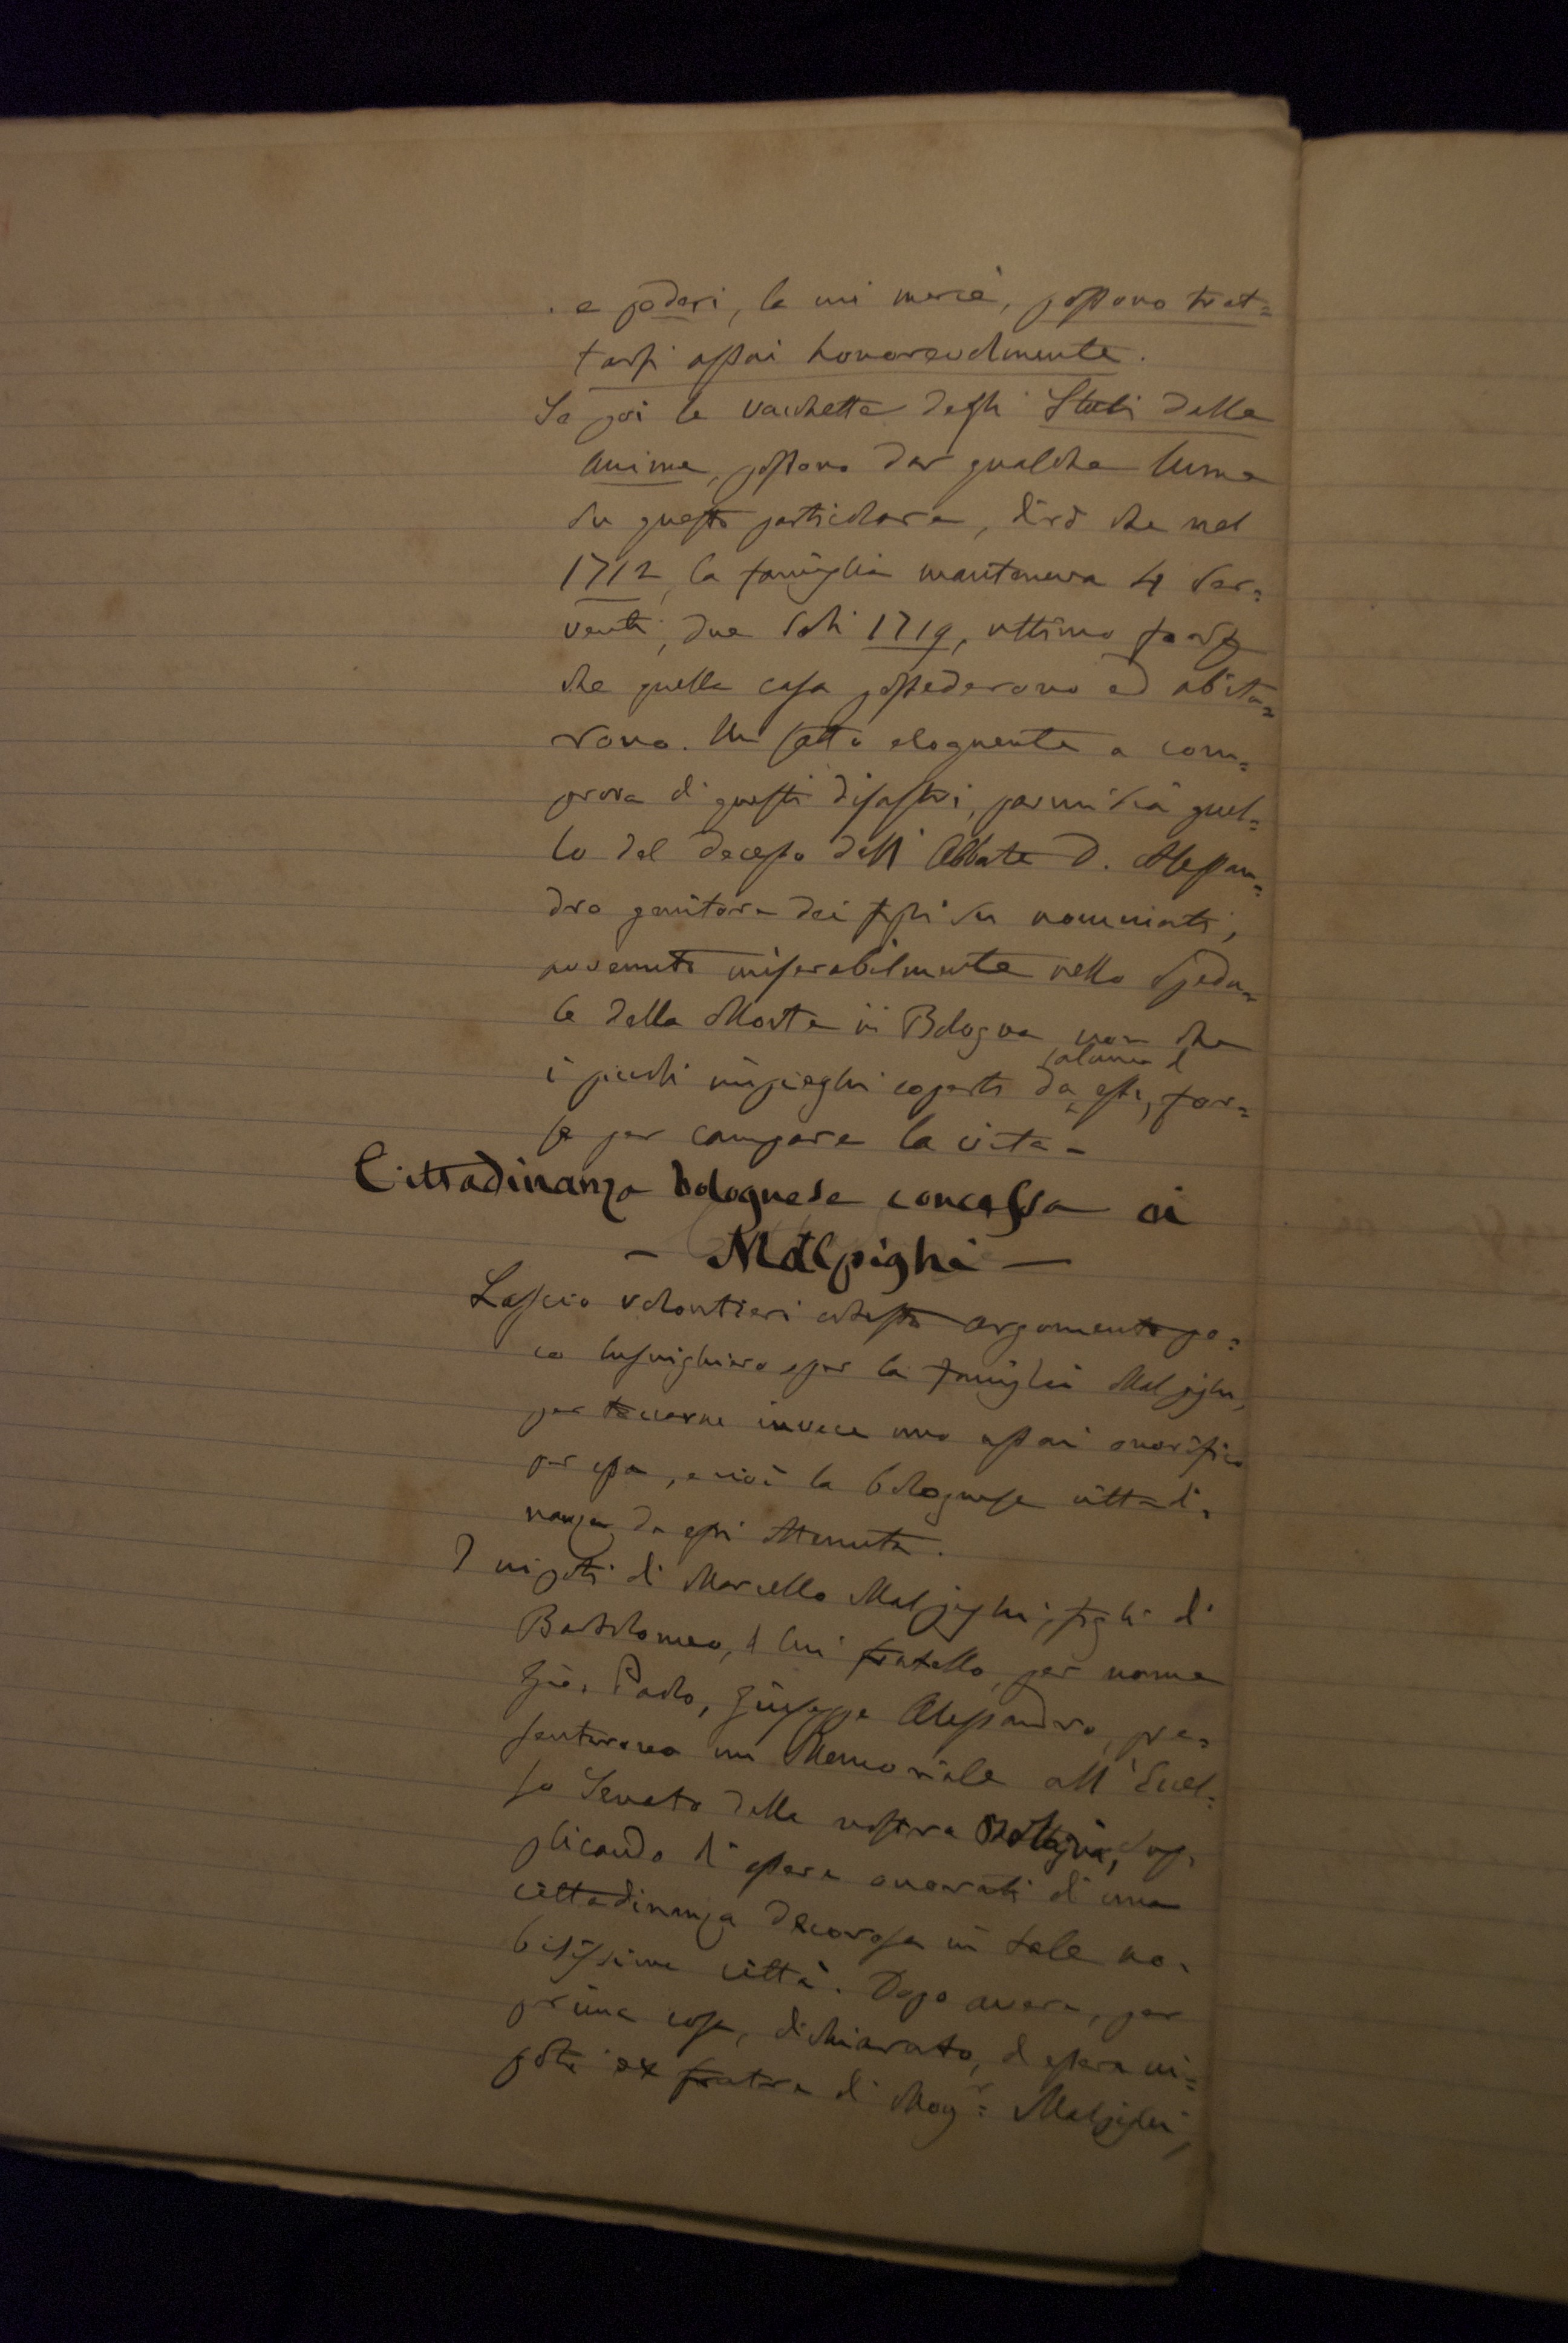 e poderi, la mi mercè, possono trat=
tarsi assai honorevolmente.
Se poi le vacchette degli Stati delle
anime, possono dar qualche lume
su questo particolare, dirò che nel
1712, la famiglia manteneva 4 ser=
venti, due soli 1719, ultimo forse
che quella casa possederono ed abita=
rono. Un fatto eloquente a com=
prova di questi disastri, parmi sia quel=
lo del decesso dell'Abbate D. Alessan=
dro genitore dei figli su nominati,
avvenuto miserabilmente nello Speda=
le della Morte in Bologna non che
i piccoli impieghi coperti da alcuni d'essi, for=
se per campare la vita –
Cittadinanza bolognese concessa ai
– Malpighi –
Lascio volontieri cotesto argomento po=
co lusinghiero per la famiglia Malpighi,
per toccarne invece uno assai onorifico
per essa, e cioè la bolognese cittadi=
nanza da essi ottenuta.
I nipoti di Marcello Malpighi, figli di
Bartolomeo, di lui fratello, per nome
Gio. Paolo, Giuseppe Alessandro, pre=
sentarono un Memoriale all'Eccel=
so Senato della nostra Bologna, sup=
plicando di essere onorati di una
cittadinanza decorosa in tale no=
bilissima città. Dopo avere, per
prima cosa, dichiarato, d'essere ni=
poti ex fratre di Mogr= Malpighi,